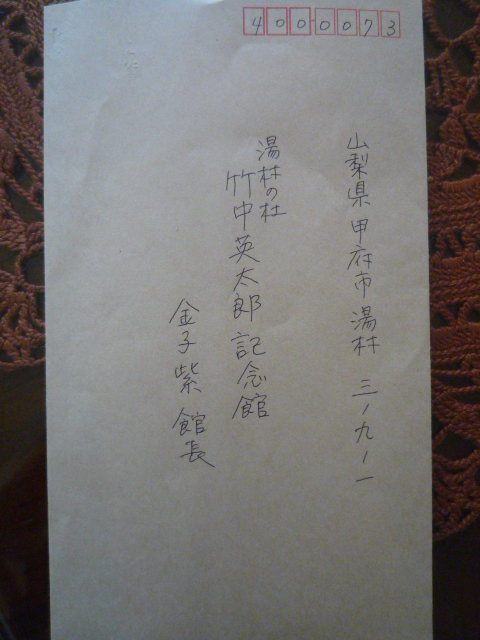 4000073
山梨県甲府市湯村 三ノ九ノ一
湯村の杜
竹中英太郎記念館
金子紫 館長